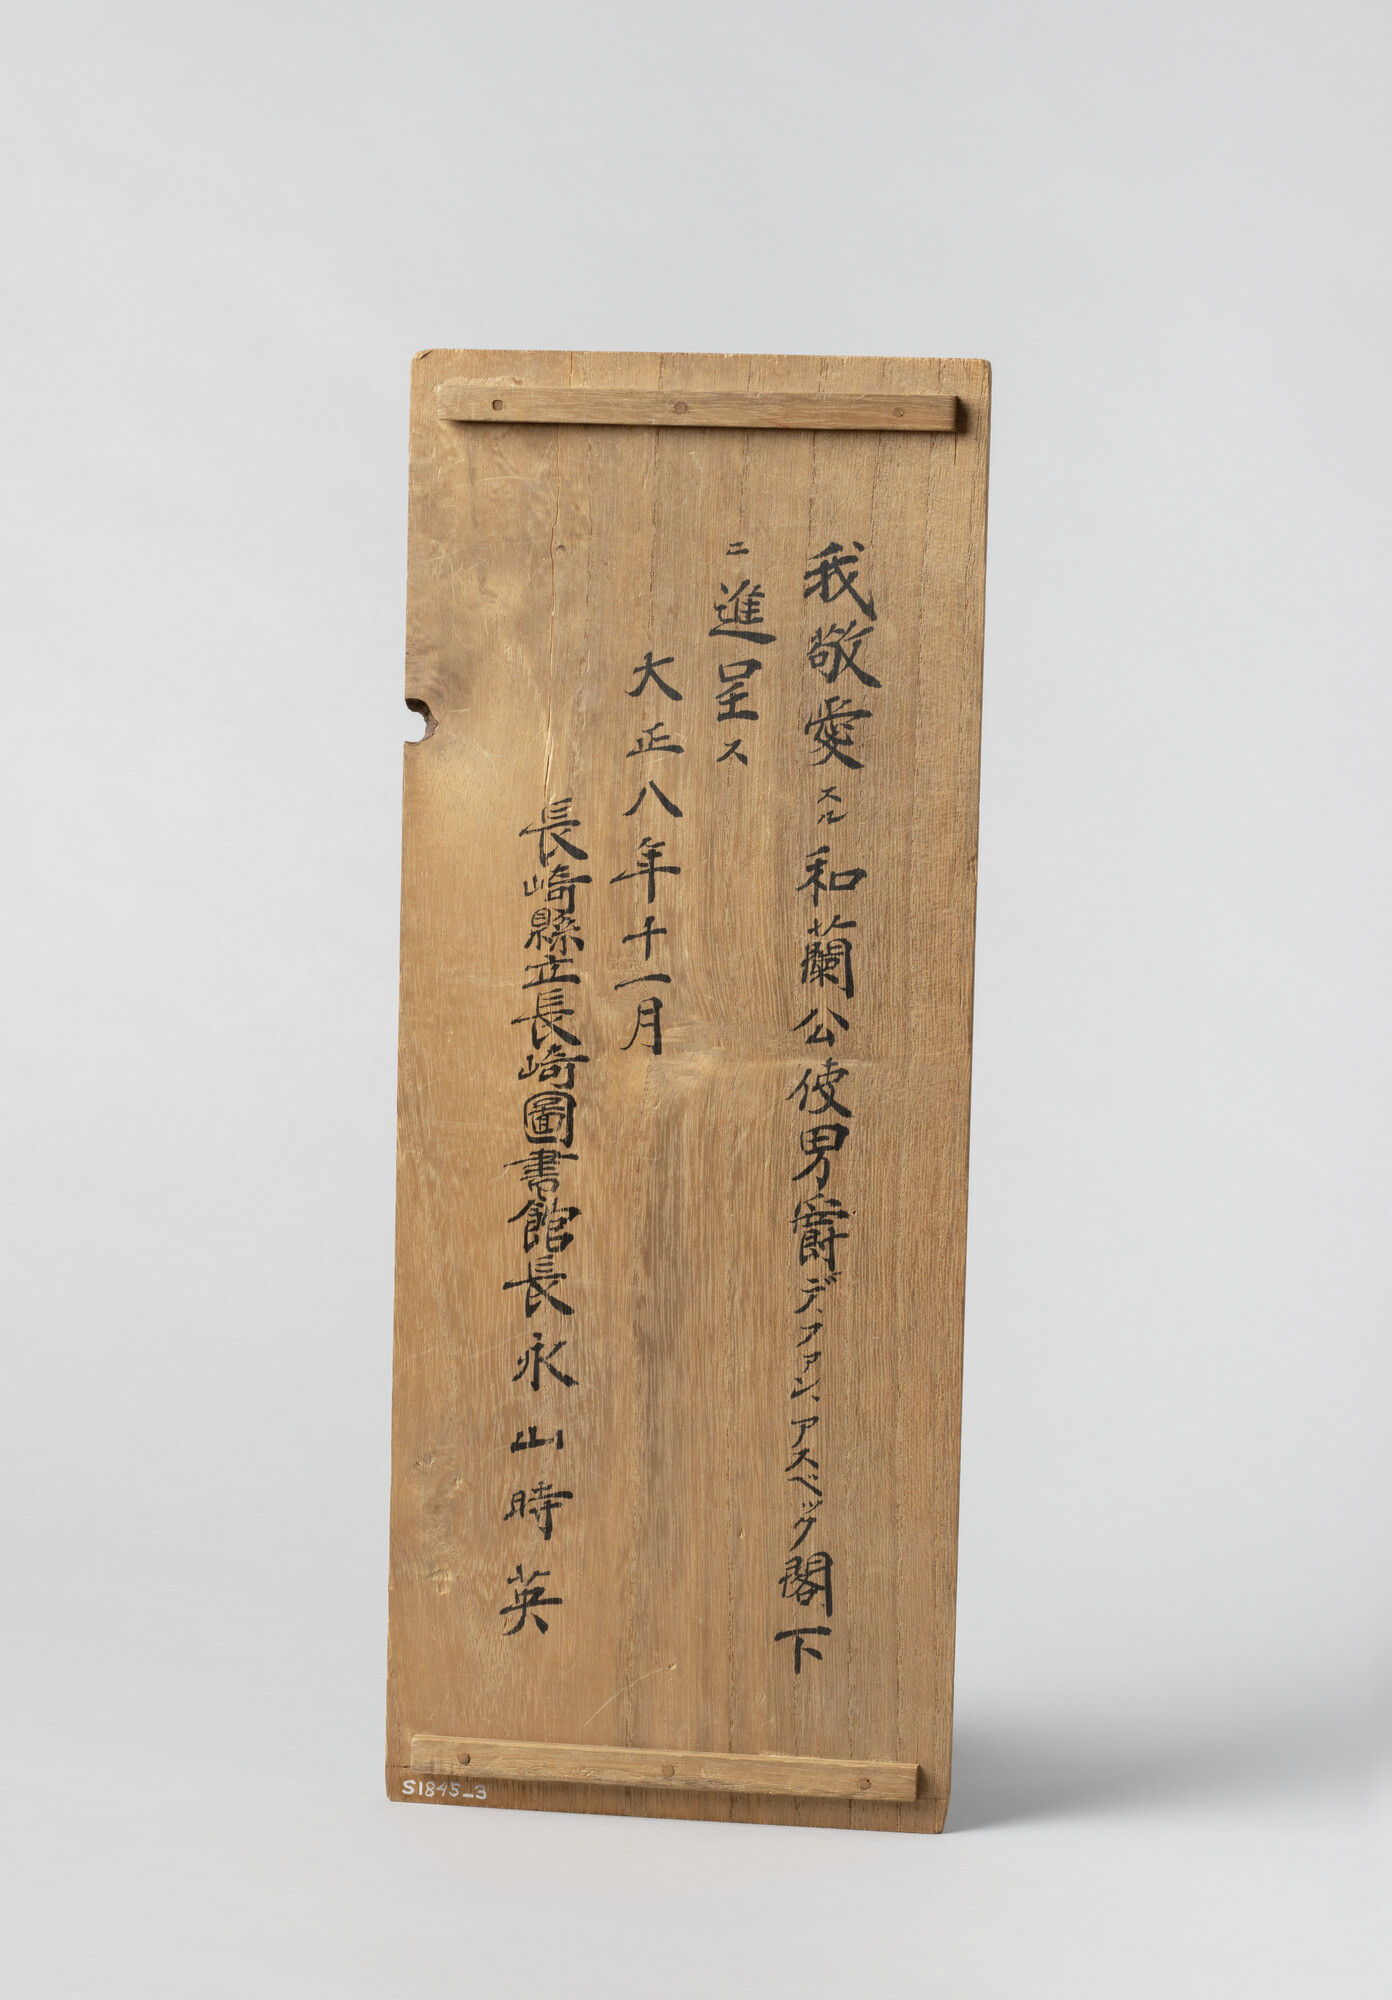 我敬愛スル和蘭公使男爵デ、ファン、アスベック閣下
ニ進呈ス
大正八年十一月
長崎縣立長崎圖書館長永山時英
S1845_3